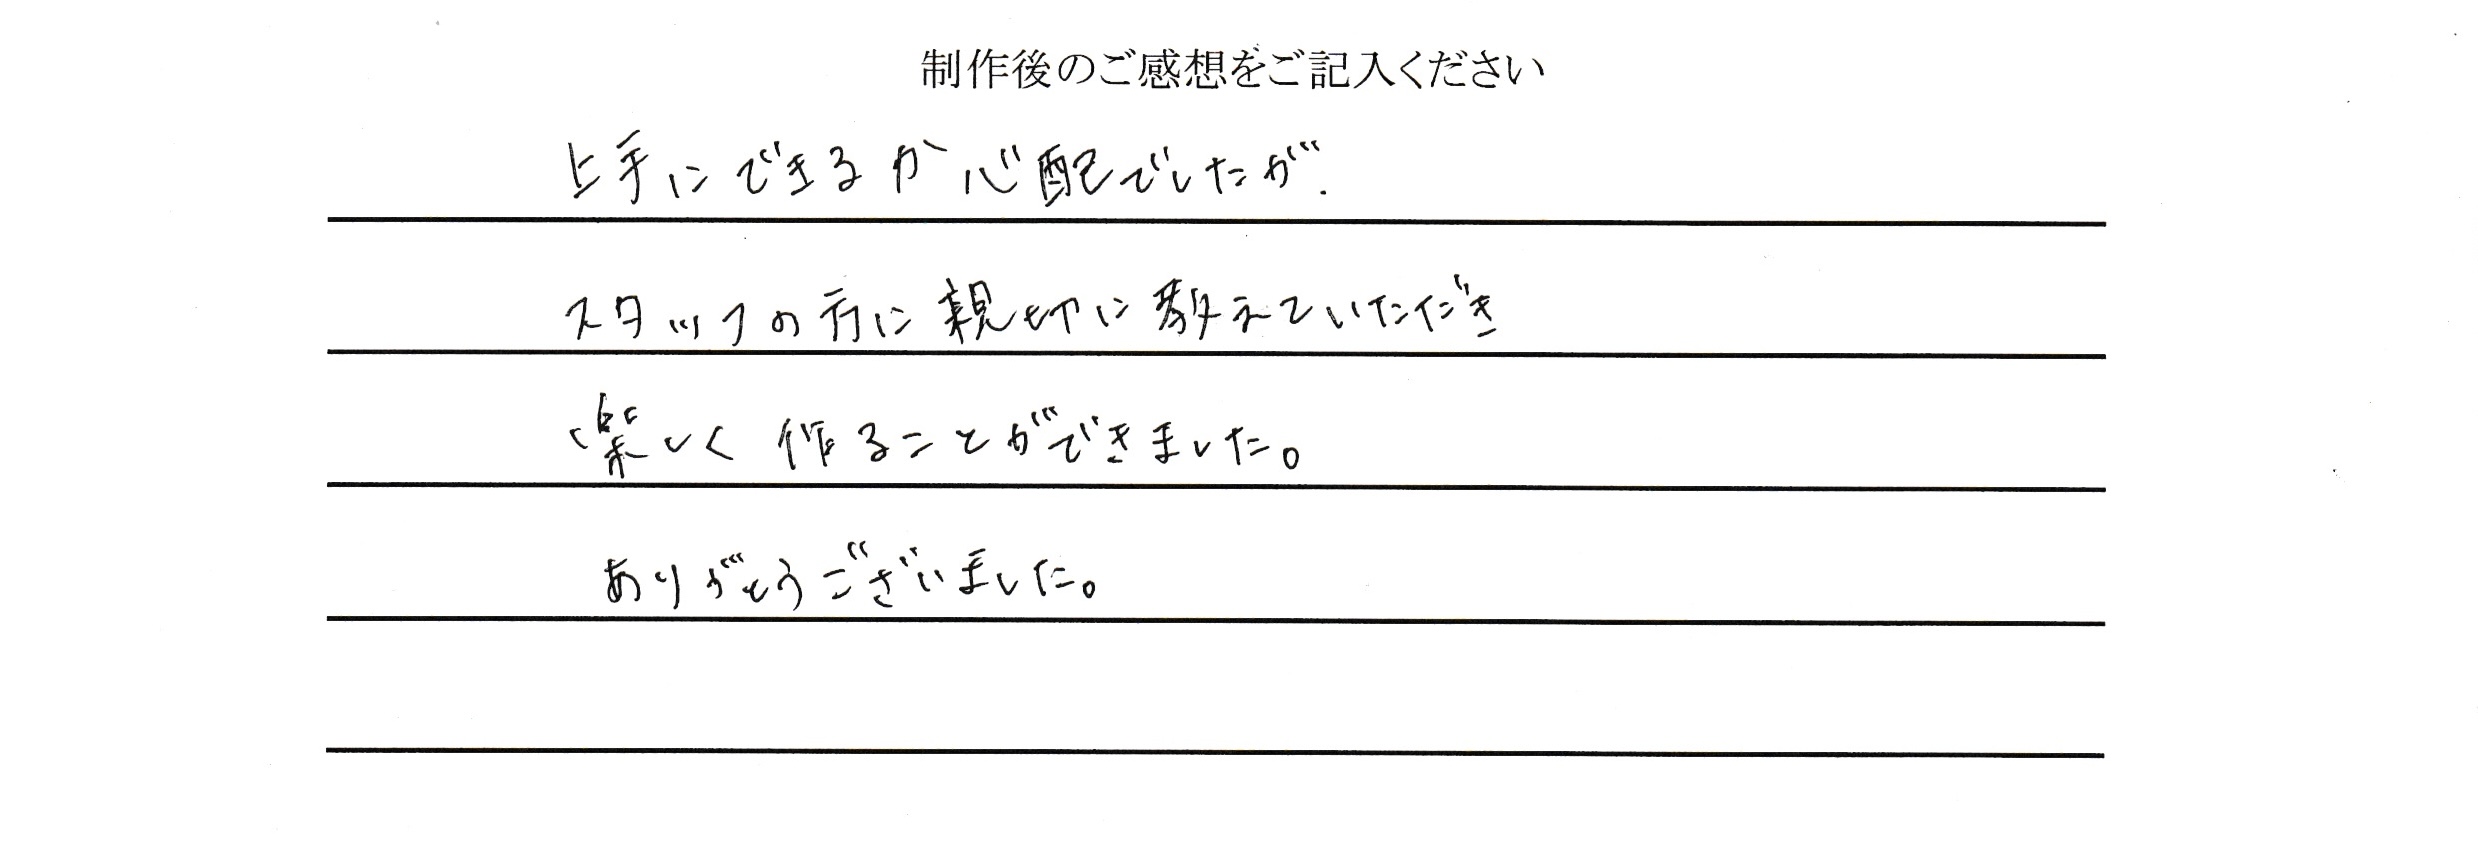 制作後のご感想をご記入ください
上手にできるか心配でしたが.
スタッフの方に親切に教えていただき
楽しく作ることができました。
ありがとうございました。